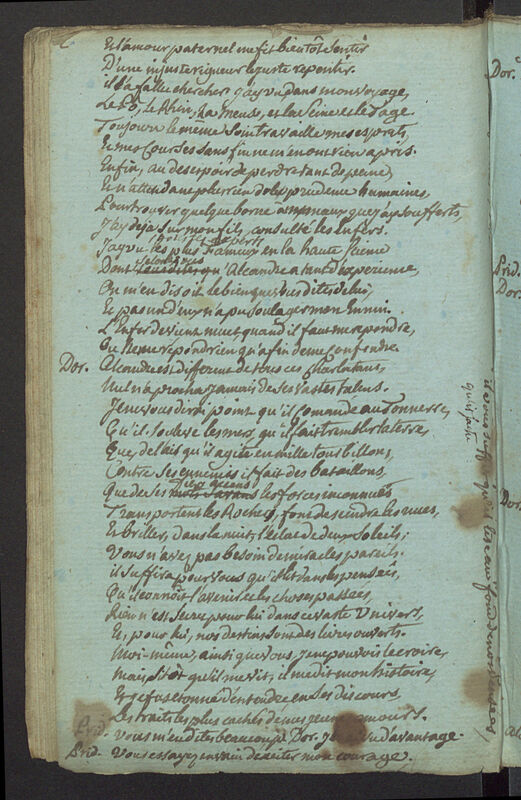 2
Et l'amour paternel me fit bientôt sentir
D'une injuste rigueur le juste repentir.
il l'a fallu chercher j'ay vu dans mon voyage,
Le Pô, le Rhin, la Meuse, et la Seine et le Tage.
Toujours le meme soin travaille mes esprits,
Et mes Courses sans fin ne m'en ont rien apris.
Enfin, au desespoir de perdre tant de peine,
Et n'attendant plus rien de la prudence humaine,
Pour trouver quelque borne à mes maux que j'ay soufferts,
J'ay déja sur mon fils, consulté les Enfers.
J'ay vu les plus fameux en la haute science
Dont selon vous qu'Alcandre a tant d'experience,
On m'en disoit le bien que vous dites de lui,
Et pas un d'eux n'a pu soulager mon Ennui.
L'Enfer devient muet quand il faut me repondre,
Ou ne me répond rien qu'afin de me confondre.
Dor. Alcandre est different de tous ces Charlatans,
Nul n'aprocha jamais de ses vastes talens.
Je ne vous dirai point qu'il comande au Tonnerre,
Qu'il souleve les mers, qu'il fait trembler la terre,
Que de l'air qu'il agite en mille tourbillons,
Contre ses ennemis il fait des bataillons,
Que de ses mots savans les forces inconnues
Transportent les Rochers, font descendre les nues,
Et briller, dans la nuit, l'éclat de deux Soleils;
Vous n'avez pas besoin de miracles pareils.
il suffira pour vous qu'il lit dans les pensées,
Qu'il connoît l'avenir et les choses passées,
Rien n'est secret pour lui dans ce vaste Univers,
Et, pour lui, nos destins sont des livres ouverts.
Moi-même, ainsi que vous, je ne pouvois le croire,
mais, sitôt qu'il me vit, il me dit mon histoire,
Et je fus étonné d'entendre en ses discours,
Les traits les plus cachés de mes jeunes amours.
Prid. vous m'en dites beaucoup. Dor. J'en ai vu davantage.
Prid. Vous essayez en vain d'exciter mon courage.